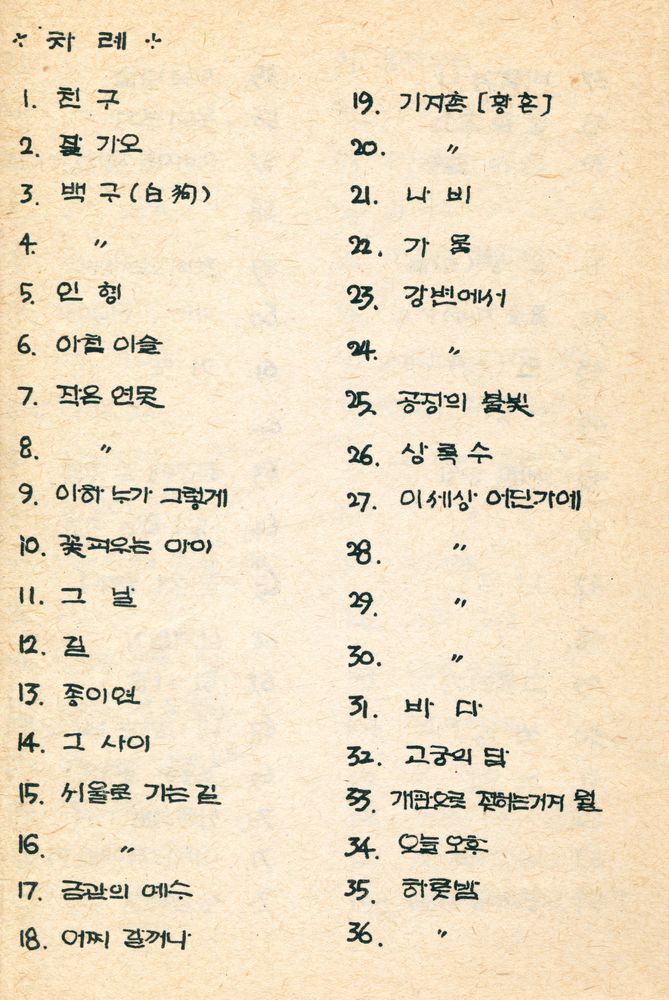 ※ 차 례 ※
1. 친 구
2. 잘 가오
3. 백 구 (白 狗)
4. 〃
5. 인 형
6. 아침 이슬
7. 작은 연못
8. 〃
9. 아하 누가 그렇게
10. 꽃 피우는 아이
11. 그 날
12. 길
13. 종이연
14. 그 사이
15. 서울로 가는 길
16. 〃
17. 금관의 예수
18. 어찌 갈꺼나
19. 기지촌 [황혼]
20. 〃
21. 나 비
22. 가 뭄
23. 강변에서
24. 〃
25. 공장의 불빛
26. 상 록 수
27. 이 세상 어딘가에
28. 〃
29. 〃
30. 〃
31. 바 다
32. 고궁의 담
33. 개판으로 젓하는거지 뭘
34. 오늘 오후
35. 하룻밤
36. 〃